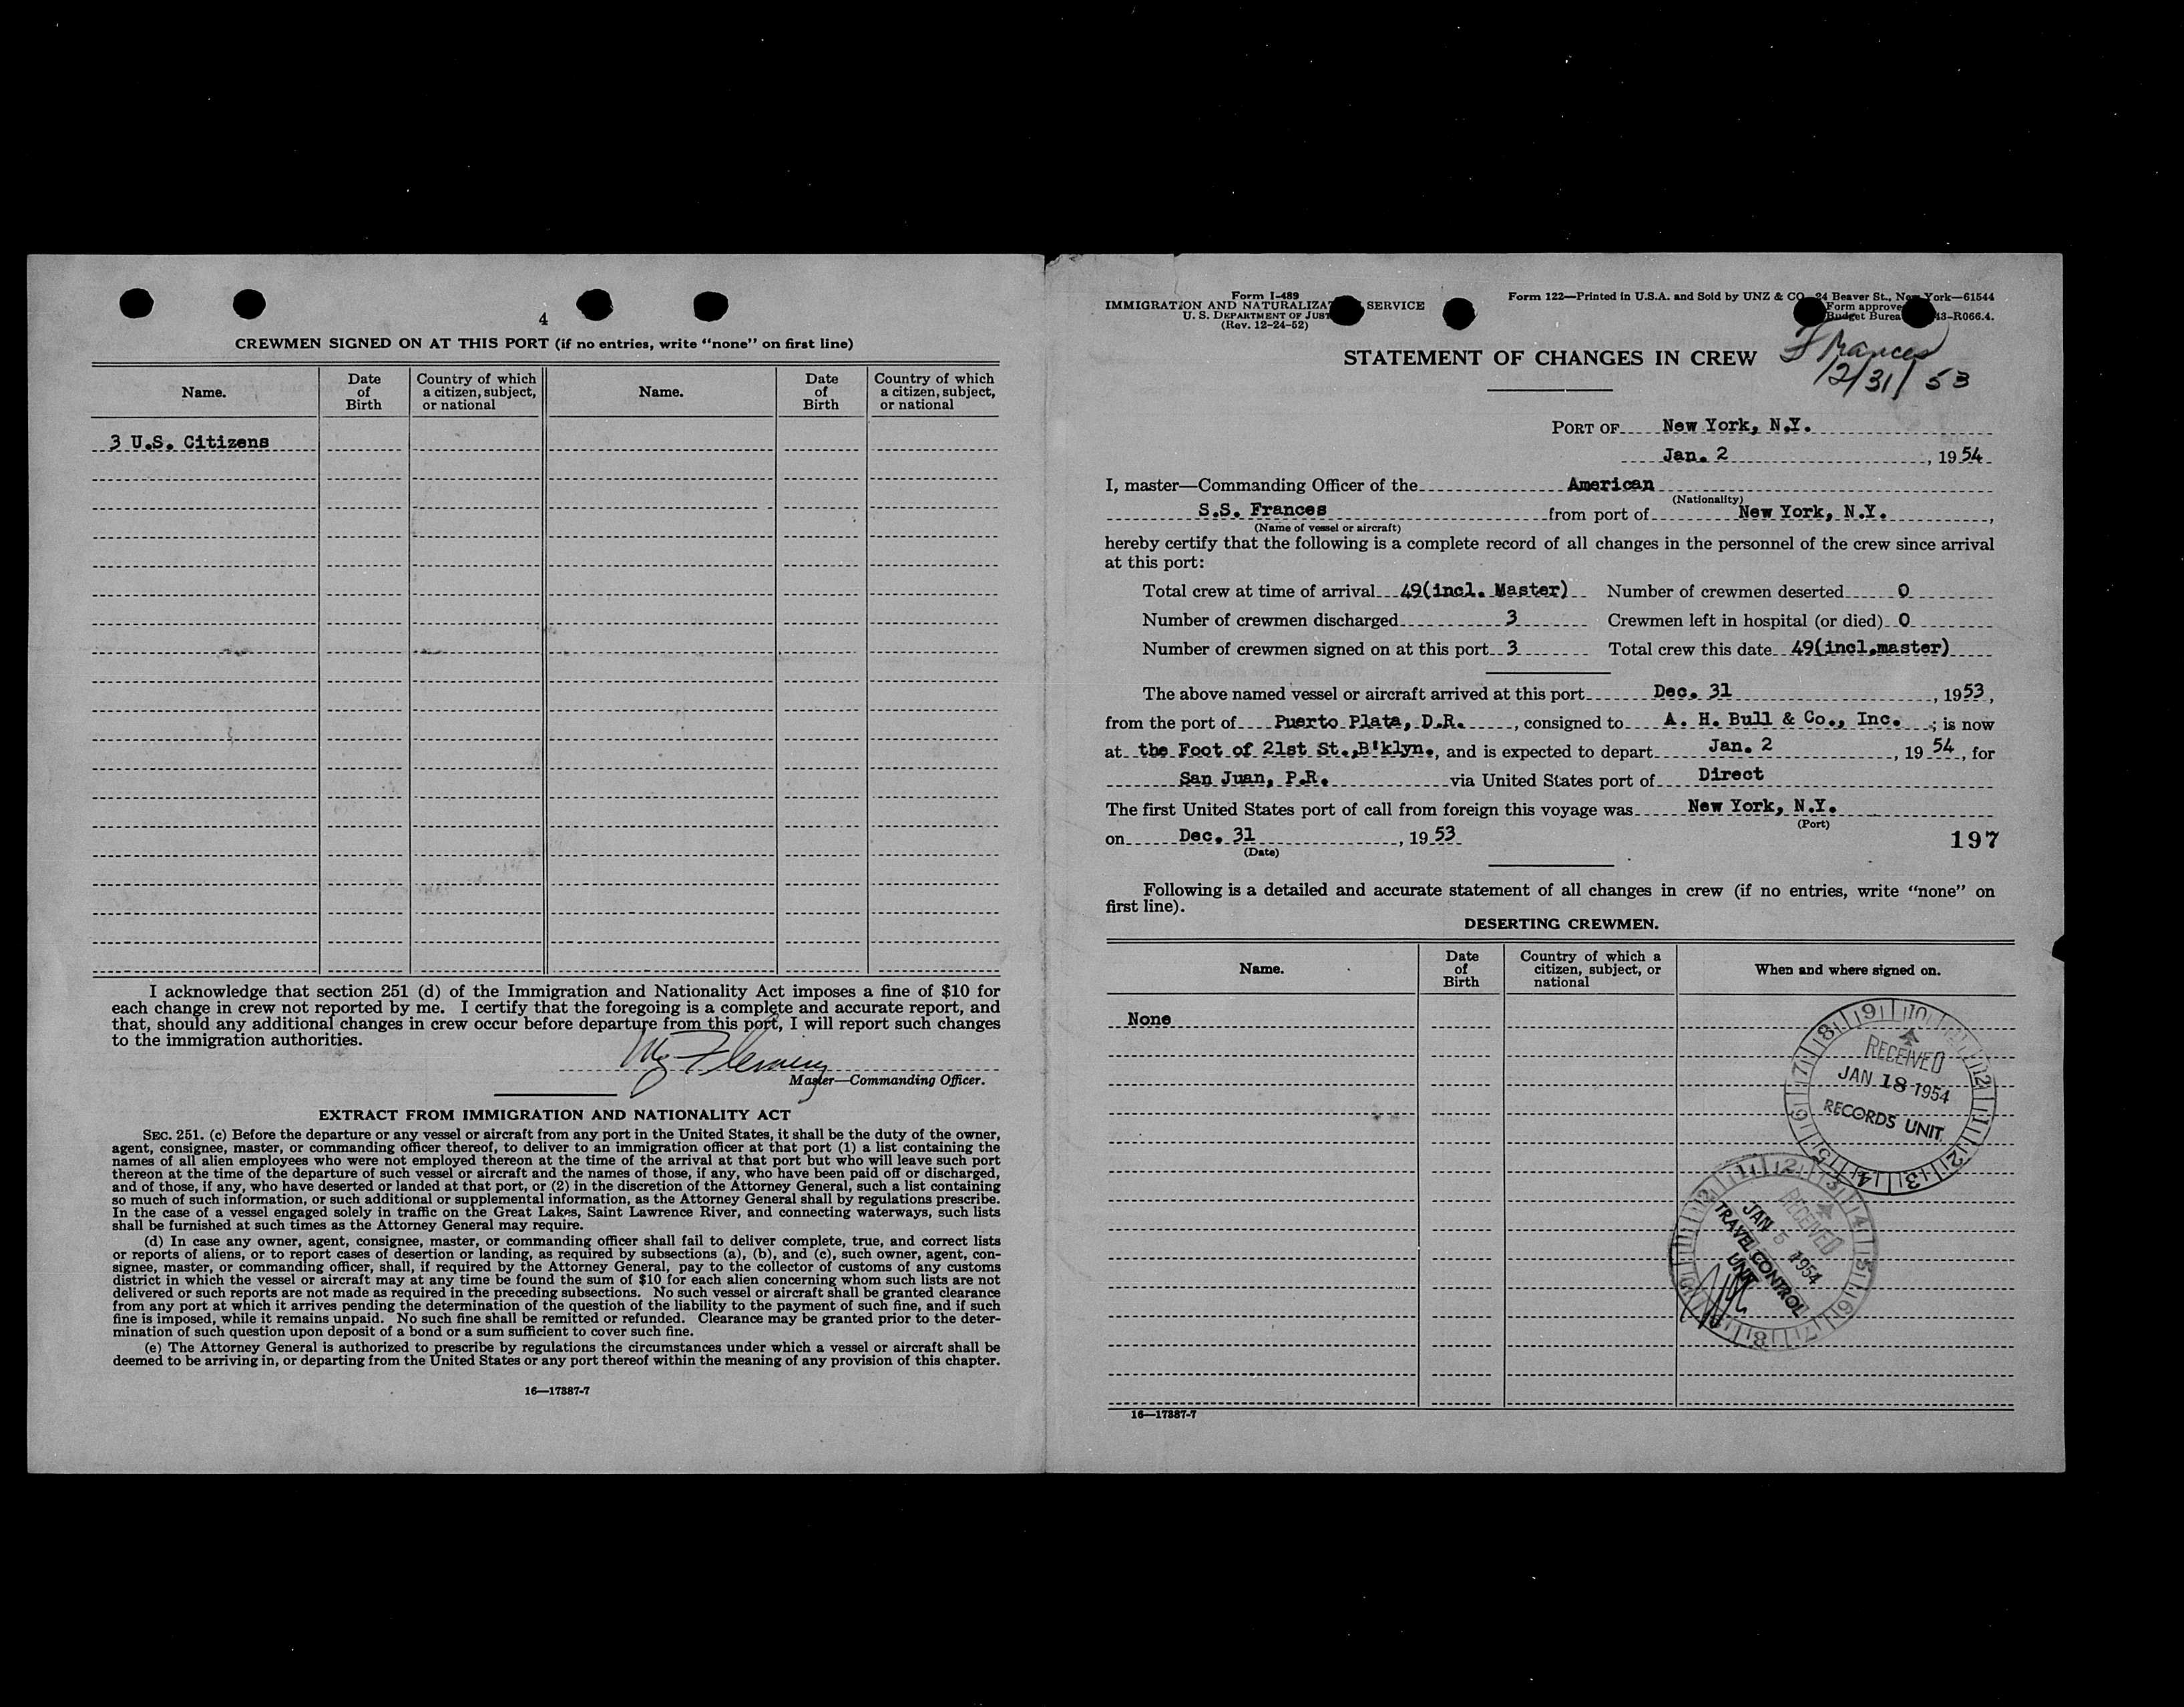 4
CREWMEN SIGNED ON AT THIS PORT (if no entries, write "none" on first line)
Name.
Date
of
Birth
Country of which
a citizen, subject,
or national
Name.
Date
of
Birth
Country of which
a citizen, subject,
or national
3 U.S. Citizens
I acknowledge that section 251 (d) of the Immigration and Nationality Act imposes a fine of $10 for
each change in crew not reported by me. I certify that the foregoing is a complete and accurate report, and
that, should any additional changes in crew occur before departure from this port, I will report such changes
to the immigration authorities.
Fleming
Master—Commanding Officer.
EXTRACT FROM IMMIGRATION AND NATIONALITY ACT
SEC. 251. (c) Before the departure or any vessel or aircraft from any port in the United States, it shall be the duty of the owner,
agent, consignee, master, or commanding officer thereof, to deliver to an immigration officer at that port (1) a list containing the
names of all alien employees who were not employed thereon at the time of the arrival at that port but who will leave such port
thereon at the time of the departure of such vessel or aircraft and the names of those, if any, who have been paid off or discharged,
and of those, if any, who have deserted or landed at that port, or (2) in the discretion of the Attorney General, such a list containing
so much of such information, or such additional or supplemental information, as the Attorney General shall by regulations prescribe.
In the case of a vessel engaged solely in traffic on the Great Lakes, Saint Lawrence River, and connecting waterways, such lists
shall be furnished at such times as the Attorney General may require.
(d) In case any owner, agent, consignee, master, or commanding officer shall fail to deliver complete, true, and correct lists
or reports of aliens, or to report cases of desertion or landing, as required by subsections (a), (b), and (c), such owner, agent, con-
signee, master, or commanding officer, shall, if required by the Attorney General, pay to the collector of customs of any customs
district in which the vessel or aircraft may at any time be found the sum of $10 for each alien concerning whom such lists are not
delivered or such reports are not made as required in the preceding subsections. No such vessel or aircraft shall be granted clearance
from any port at which it arrives pending the determination of the question of the liability to the payment of such fine, and if such
fine is imposed, while it remains unpaid. No such fine shall be remitted or refunded. Clearance may be granted prior to the deter-
mination of such question upon deposit of a bond or a sum sufficient to cover such fine.
(e) The Attorney General is authorized to prescribe by regulations the circumstances under which a vessel or aircraft shall be
deemed to be arriving in, or departing from the United States or any port thereof within the meaning of any provision of this chapter.
16—17887-7
Form I-489
IMMIGRATION AND NATURALIZAT SERVICE
U. S. DEPARTMENT OF JUST
(Rev. 12-24-52)
Form 122—Printed in U.S.A. and Sold by UNZ & CO. 24 Beaver St., New York—61544
Form approve
Budget Burea 43-R066.4.
Frances
12/31/53
STATEMENT OF CHANGES IN CREW
PORT OF New York, N.Y.
Jan. 2, 1954
I, master—Commanding Officer of the American
(Nationality)
S.S. Frances from port of New York, N.Y.,
(Name of vessel or aircraft)
hereby certify that the following is a complete record of all changes in the personnel of the crew since arrival
at this port:
Total crew at time of arrival 49(incl. Master) Number of crewmen deserted 0
Number of crewmen discharged 3 Crewmen left in hospital (or died) 0
Number of crewmen signed on at this port 3 Total crew this date 49(incl.master)
The above named vessel or aircraft arrived at this port Dec. 31, 1953,
from the port of Puerto Plata, D.R., consigned to A. H. Bull & Co., Inc. ; is now
at the Foot of 21st St.,B'klyn., and is expected to depart Jan. 2, 1954, for
San Juan, P.R. via United States port of Direct
The first United States port of call from foreign this voyage was New York, N.Y.
(Port)
on Dec. 31, 1953
(Date)
197
Following is a detailed and accurate statement of all changes in crew (if no entries, write "none" on
first line).
DESERTING CREWMEN.
Name.
Date
of
Birth
Country of which a
citizen, subject, or
national
When and where signed on.
None
RECEIVED
JAN 18 1954
RECORDS UNIT
RECEIVED
JAN 5 1954
TRAVEL CONTROL
UNIT
16—17887-7